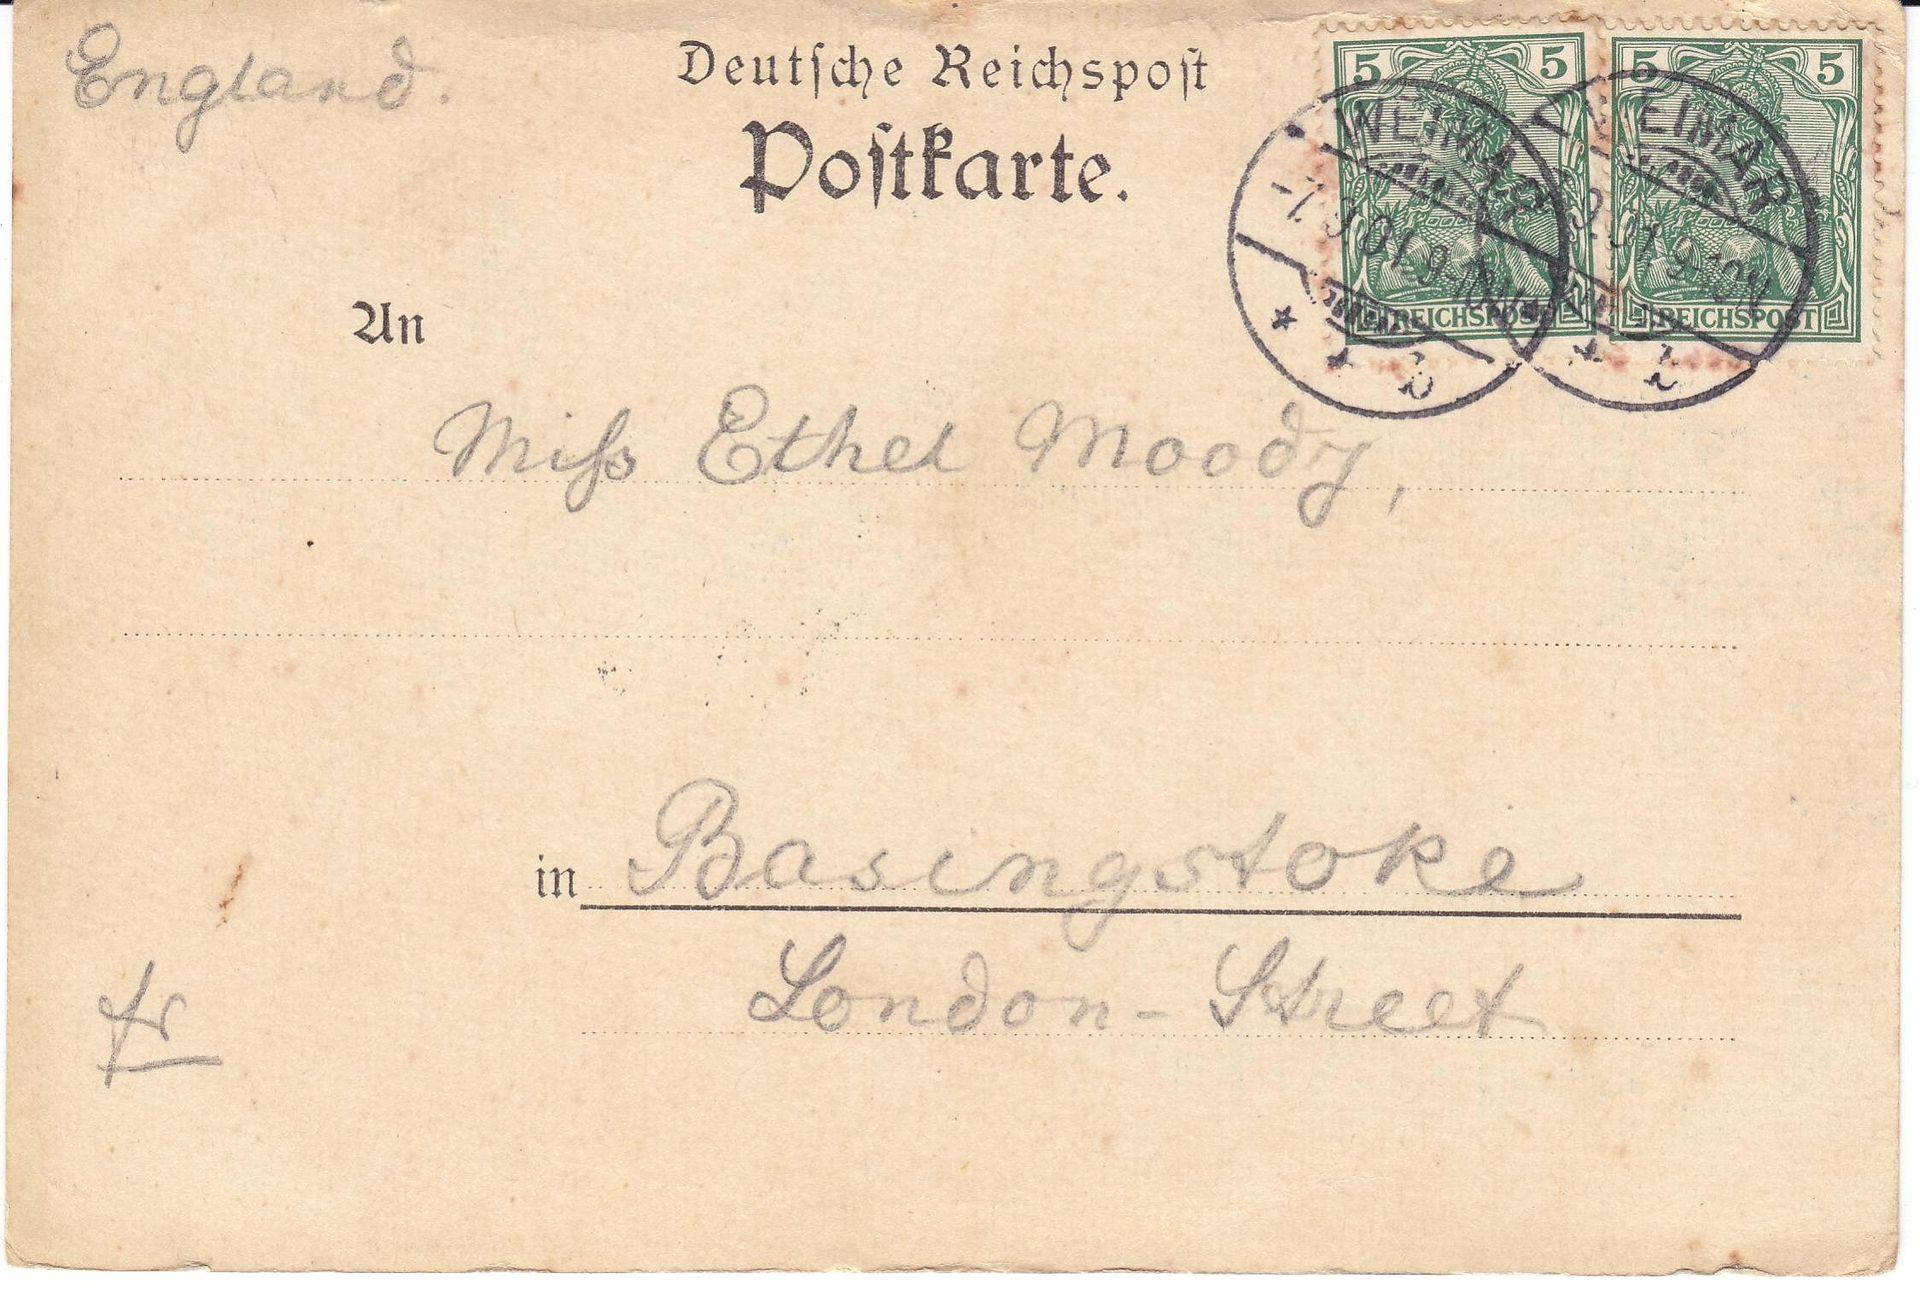 England.
Deutſche Reichspoſt
Poſtkarte.
5 5
REICHSPOST
5 5
REICHSPOST
WEIMAR
-7.9.01.9-10N
* * b
WEIMAR
9.01.9-10N
An
Miſs Ethel Moody,
in Basingstoke
London-Street
fr